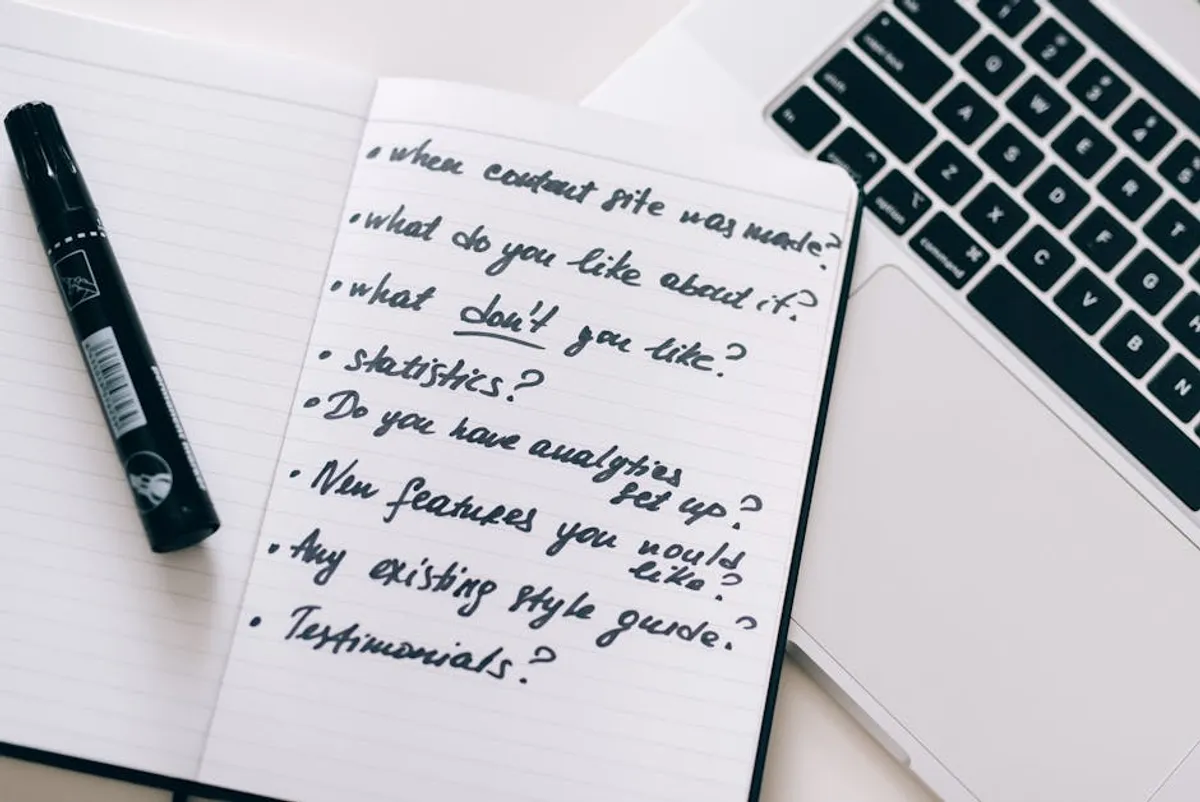 • when content site was made?
• what do you like about it?
• what don't you like?
• statistics?
• Do you have analytics
set up?
• New features you would
like?
• Any existing style guide?
• Testimonials?
esc
caps lock
shift
fn
control
option
command
1
2
3
4
5
Q
W
E
R
T
A
S
D
F
G
Z
X
C
V
B
N